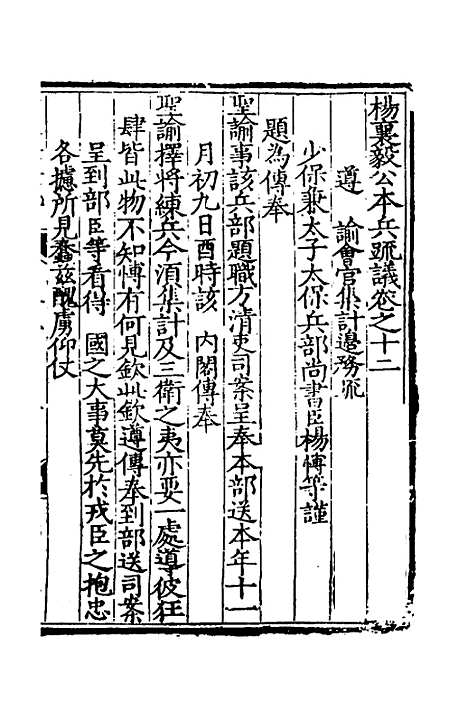 楊襄毅公本兵疏議卷之十二
遵　諭會官集計邊務疏
少保兼太子太保兵部尚書臣楊博等謹
題為傳奉
聖諭事該兵部題職方清吏司案呈奉本部送本年十一
月初九日酉時該　內閣傳奉
聖諭擇將練兵今須集計及三衛之夷亦要一處導彼狂
肆皆此物不知博有何見欽此欽遵傳奉到部送司案
呈到部臣等看得　國之大事莫先於戎臣之抱忠
各攄所見蠢茲醜虜仰仗